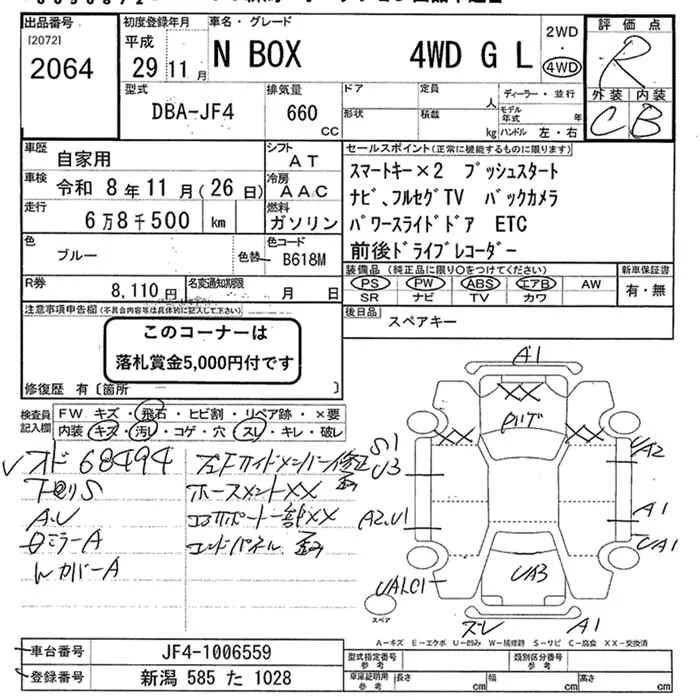 出品番号
[2072]
2064
初度登録年月
平成
29 11 月
車名・グレード
N BOX 4WD G L
2WD
・
4WD
評価点
R
外装 内装
C B
型式
DBA-JF4
排気量
660
CC
ドア
形状
定員
人
積載
kg
ディーラー・並行
モデル年式
年
ハンドル 左・右
車歴
自家用
シフト
AT
車検
令和 8年11月(26日)
冷房
AAC
走行
6万8千500 km
燃料
ガソリン
色
ブルー
色替
色コード
B618M
R券
8,110円
名変通知期限
月 日
セールスポイント(正常に機能するものに限ります)
スマートキー×2 プッシュスタート
ナビ、フルセグTV バックカメラ
パワースライドドア ETC
前後ドライブレコーダー
装備品(純正品に限り○をつけてください)
PS PW ABS エアB AW
SR ナビ TV カワ
新車保証書
有・無
後日品
スペアキー
注意事項申告欄(不具合内容等は具体的に記入して下さい)
このコーナーは
落札賞金5,000円付です
修復歴 有〔箇所 〕
検査員記入欄
FW キズ・飛石・ヒビ割・リペア跡・×要
内装 キズ・汚レ・コゲ・穴・スレ・キレ・破レ
オド 68494
下廻りS
A.U
ミラーA
カバーA
ホースメントXX
コアサポート一部XX
エンドパネル 歪み
A1
XX
XX
XX
S1
U3
UA2
A2.U1
A1
UA1
UA3
スレ
A1
スペア
A-キズ E-エクボ U-凹み W-補修跡 S-サビ C-腐食 XX-交換済
車台番号
JF4-1006559
登録番号
新潟 585 た 1028
型式指定番号
参考
類別区分番号
参考
車庫証明用
参考
長さ cm
幅 cm
高さ cm